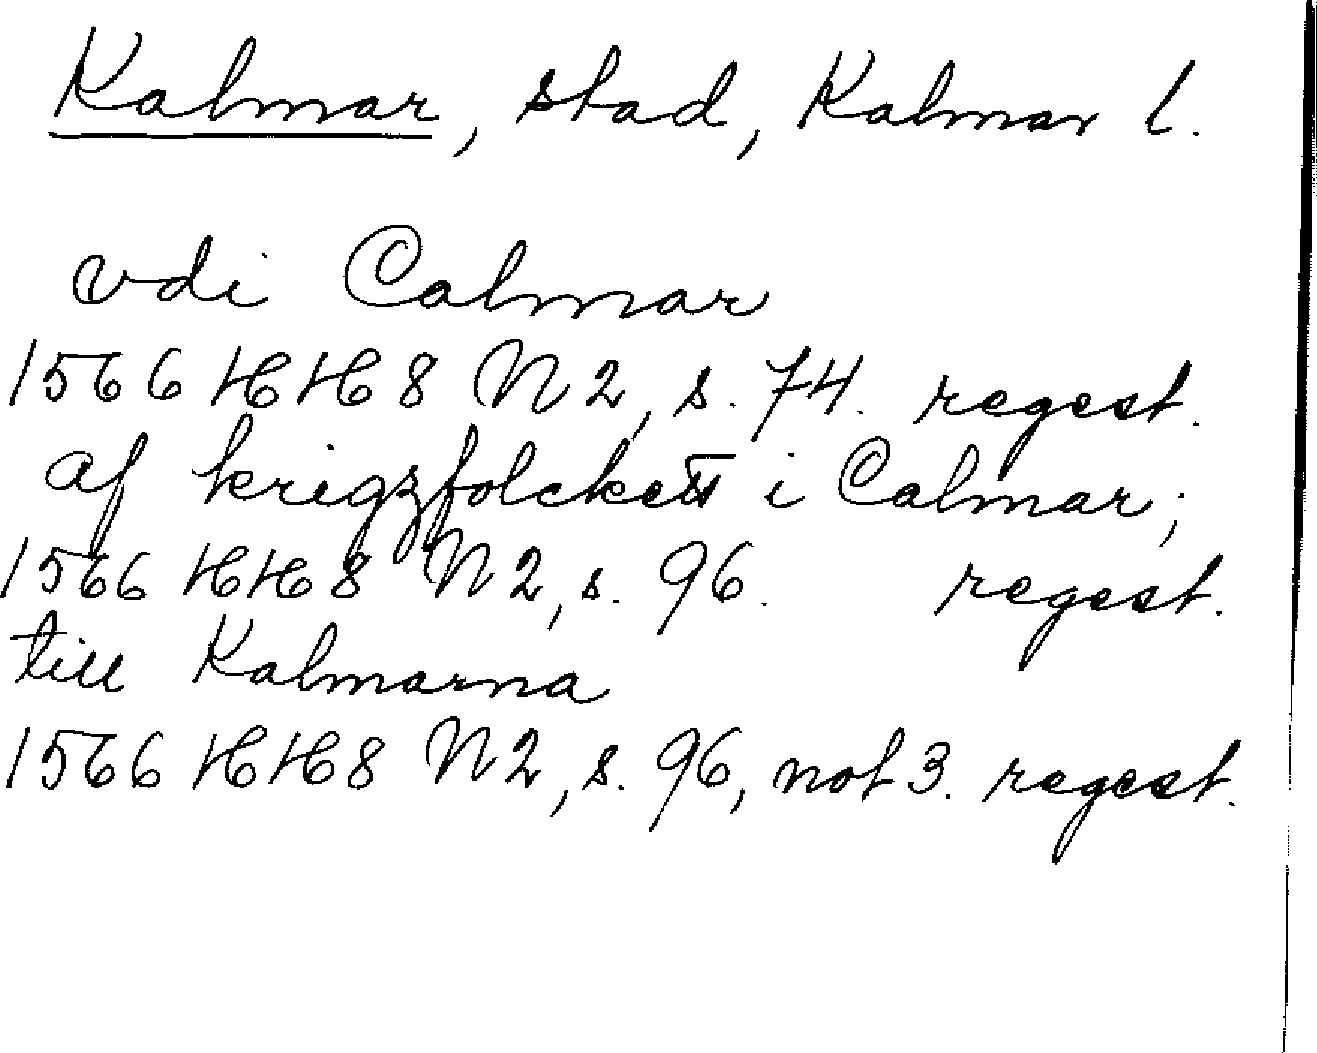 Kalmar, stad, Kalmar l.
vdi Calmar
1566 HH8 N2, s. 74. regest.
af krigzfolckett i Calmar;
1566 HH8 N2, s. 96. regest.
till Kalmarna
1566 HH8 N2, s. 96, not 3. regest.